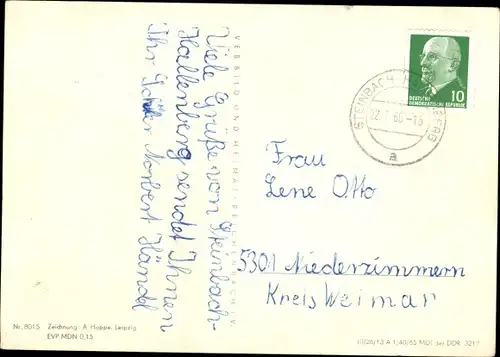 Viele Grüße von Steinbach-
Hallenberg sendet Ihnen
Ihr Schüler Norbert Händel
DEUTSCHE
DEMOKRATISCHE REPUBLIK
10
STEINBACH
a
Frau
Lene Otto
5301 Niederzimmern
Kreis Weimar
Nr. 8015 Zeichnung: A. Hoppe, Leipzig
EVP MDN 0,15
A 1/40/65 MDI der DDR 3217